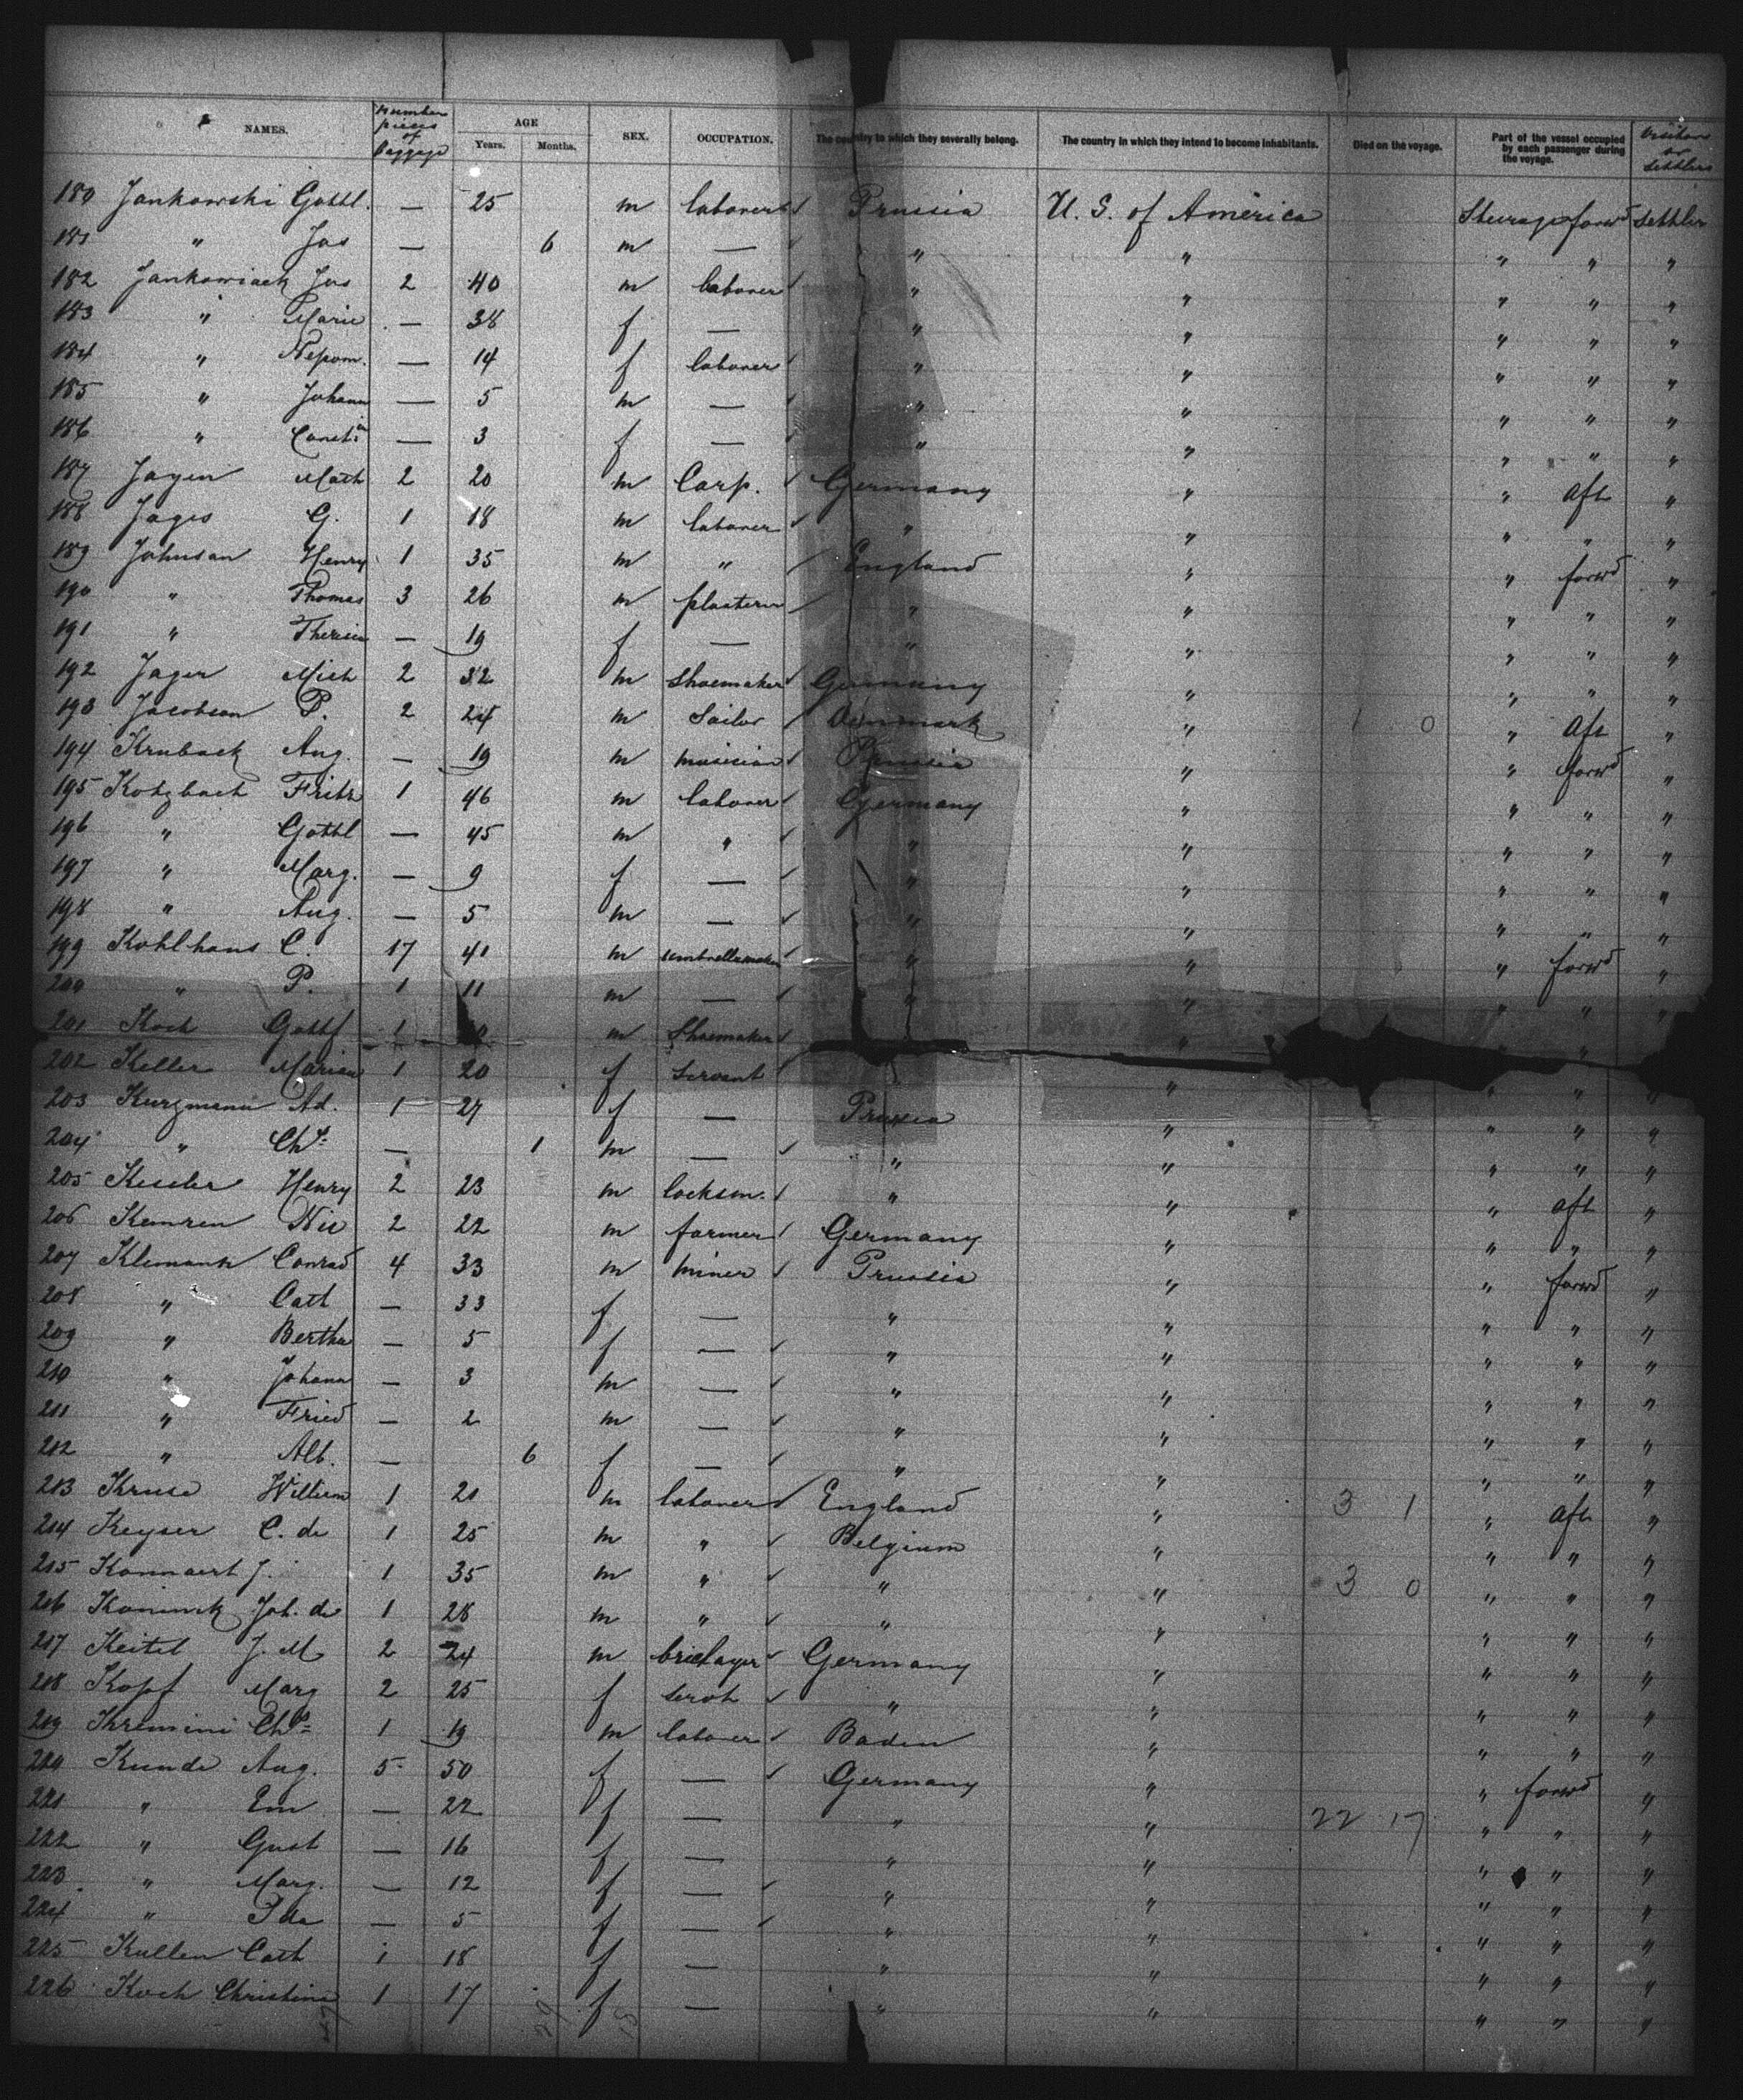 NAMES. Number pieces of Baggage AGE Years. Months. SEX. OCCUPATION. The country to which they severally belong. The country in which they intend to become inhabitants. Died on the voyage. Part of the vessel occupied by each passenger during the voyage. Visitors or Settlers
180 Jankowski Gottl. — 25 m laborer ✓ Prussia U. S. of America Steerage forwd Settler
181 " Jos — 6 m — " " " " "
182 Jankowiack Jos 2 40 m laborer ✓ " " " " "
183 " Marie — 38 f — " " " " "
184 " Nepom. — 14 f laborer ✓ " " " " "
185 " Johann — 5 m — " " " " "
186 " — 3 f — " " " " "
187 Jayen Math 2 20 m Carp. ✓ Germany " " aft "
188 Jages G. 1 18 m laborer ✓ " " " " "
189 Johnson Henry 1 35 m " ✓ England " " forwd "
190 " Thomas 3 26 m plasterer ✓ " " " " "
191 " — 19 f — " " " " "
192 Jager Mich 2 32 m Shoemaker ✓ Germany " " " "
193 Jacobson P. 2 24 m Sailor ✓ Denmark " 1 0 " aft "
194 Kruback Aug. — 19 m musician ✓ Prussia " " forwd "
195 Kotzbach Fritz 1 46 m laborer ✓ Germany " " " "
196 " Gottl — 45 m " ✓ " " " " "
197 " Marg. — 9 f — ✓ " " " " "
198 " Aug. — 5 m — ✓ " " " " "
199 Kohlhans C. 17 41 m umbrellamaker ✓ " " " forwd "
200 " P. 1 11 m — ✓ " " " " "
201 Koch Gottf 1 m Shoemaker ✓ " " "
202 Keller 1 20 f Servant ✓ " " " "
203 Kurzmann Ad. 1 27 f — Prussia " " " "
204 " Chs. — 1 m — ✓ " " " " "
205 Keseler Henry 2 23 m locksm. ✓ " " " aft "
206 Kemren Nic 2 22 m farmer ✓ Germany " " " "
207 Klemank Conrad 4 33 m miner ✓ Prussia " " forwd "
208 " Cath — 33 f — " " " " "
209 " Bertha — 5 f — ✓ " " " " "
210 " Johann — 3 m — ✓ " " " " "
211 " Fried — 2 m — ✓ " " " " "
212 " Alb. — 6 f — ✓ " " " " "
213 Kruse Willem 1 21 m laborer ✓ England " 3 1 " aft "
214 Keyser C. de 1 25 m " ✓ Belgium " " " "
215 Konnaert J. 1 35 m " ✓ " " 3 0 " " "
216 Koninck Joh. de 1 28 m " ✓ " " " " "
217 Keitel J. M 2 24 m bricklayer ✓ Germany " " " "
218 Kopf Marg 2 25 f servt ✓ " " " " "
219 Kremini Chs 1 19 m laborer ✓ Baden " " " "
220 Kunde Aug. 5 50 f — ✓ Germany " " forwd "
221 " Em — 22 f — " " 22 17 " " "
222 " Gust — 16 f — " " " " "
223 " Marg. — 12 f — ✓ " " " " "
224 " Ida — 5 f — ✓ " " " " "
225 Kullen Cath 1 18 f — " " " " "
226 Koch Christine 1 17 f — " " " " "